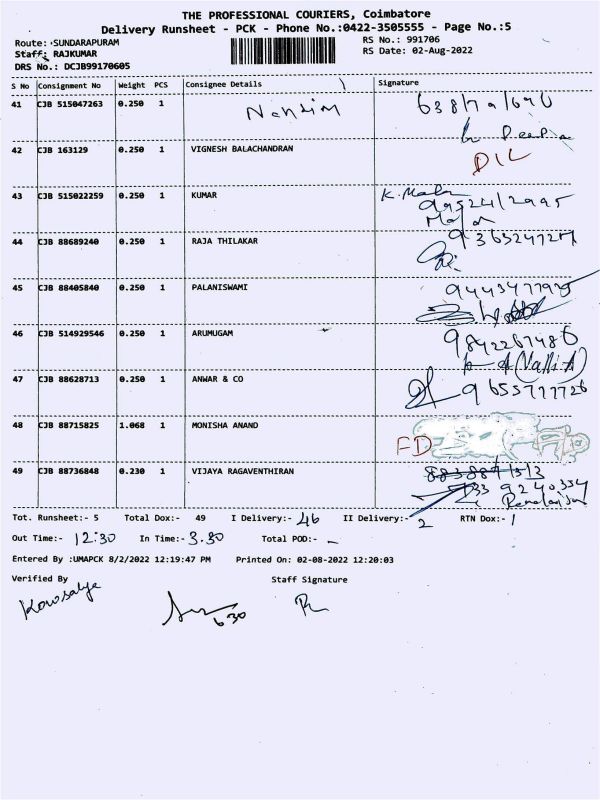 THE PROFESSIONAL COURIERS, Coimbatore
Delivery Runsheet - PCK - Phone No.:0422-3505555 - Page No.:5
Route: SUNDARAPURAM RS No.: 991706
Staff: RAJKUMAR RS Date: 02-Aug-2022
DRS No.: DCJB99170605
S No Consignment No Weight PCS Consignee Details Signature
41 CJB 515047263 0.250 1
42 CJB 163129 0.250 1 VIGNESH BALACHANDRAN DIL
43 CJB 515022259 0.250 1 KUMAR K. Mala
44 CJB 88689240 0.250 1 RAJA THILAKAR
45 CJB 88405840 0.250 1 PALANISWAMI
46 CJB 514929546 0.250 1 ARUMUGAM 9842267486
47 CJB 88628713 0.250 1 ANWAR & CO 9655777726
48 CJB 88715825 1.068 1 MONISHA ANAND FD
49 CJB 88736848 0.230 1 VIJAYA RAGAVENTHIRAN
Tot. Runsheet:- 5 Total Dox:- 49 I Delivery:- 46 II Delivery:- 2 RTN Dox:- 1
Out Time:- 12.30 In Time:- 3.30 Total POD:- -
Entered By :UMAPCK 8/2/2022 12:19:47 PM Printed On: 02-08-2022 12:20:03
Verified By Staff Signature
Kowsalya 6.30